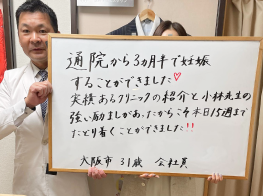 通院から3ヵ月半で妊娠
することができました♡
実績あるクリニックの紹介と小林先生の
強い励ましがあったからこそ本日15週まで
たどり着くことができました!!
大阪市 31歳 会社員